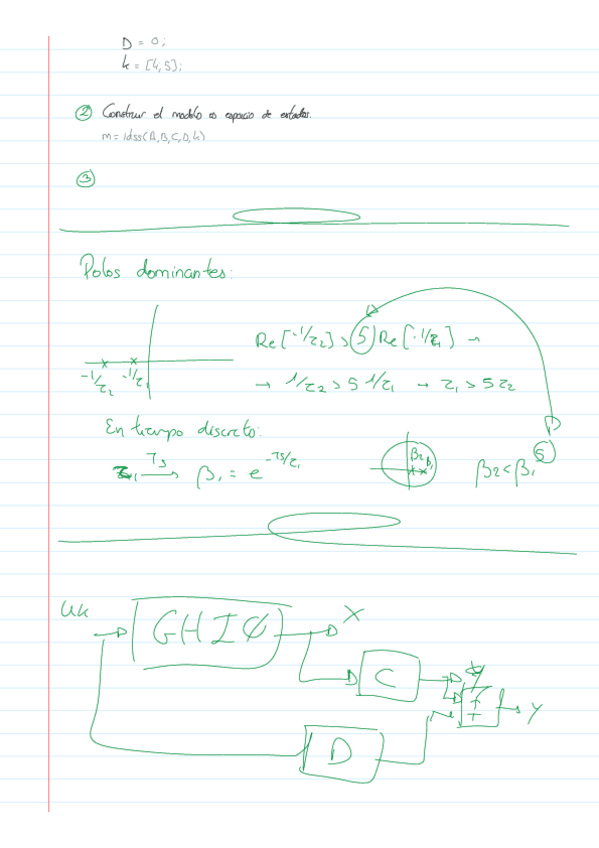 D = 0;
k = [4,5];
② Construir el modelo es espacio de estados.
m = idss(A,B,C,D,k)
③
Polos dominantes:
Re[-1/τ2] > 5 Re[-1/τ1] →
-1/τ2 -1/τ1
→ 1/τ2 > 5 1/τ1 → τ1 > 5 τ2
En tiempo discreto:
τ1 Ts → β1 = e^-Ts/τ1
β2 β1
β2 < β1^5
uk
GHIO
X
C
+
+
Y
D